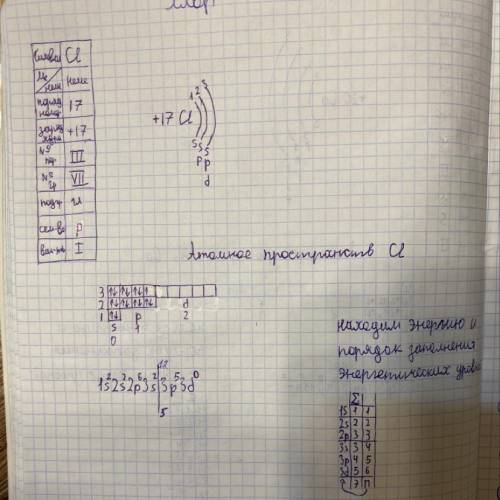 Хлор
Символ Cl
Ме/неме неме
поряд номер 17
заряд ядра +17
№ пер III
№ гр VII
подгр
сем-во p
вал-ть I
1 2 3
+17 Cl
s s s
p p
d
Атомное пространств Cl
3 ↑↓ ↑↓ ↑↓ ↑
2 ↑↓ ↑↓ ↑↓ ↑↓ d
1 ↑↓ p 2
s 1
0
1s²2s²2p⁶3s²3p⁵3d⁰
5
находим энергию и
порядок заполнения
энергетических уровн
Σ
1s 1 1
2s 2 2
2p 3 3
3s 3 4
3p 4 5
3d 5 6